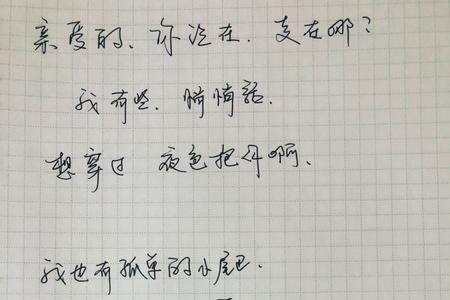 亲爱的、你在、在哪？
我有些、悄悄话.
想穿过 夜色把啊、
我也有孤单的小尾巴.